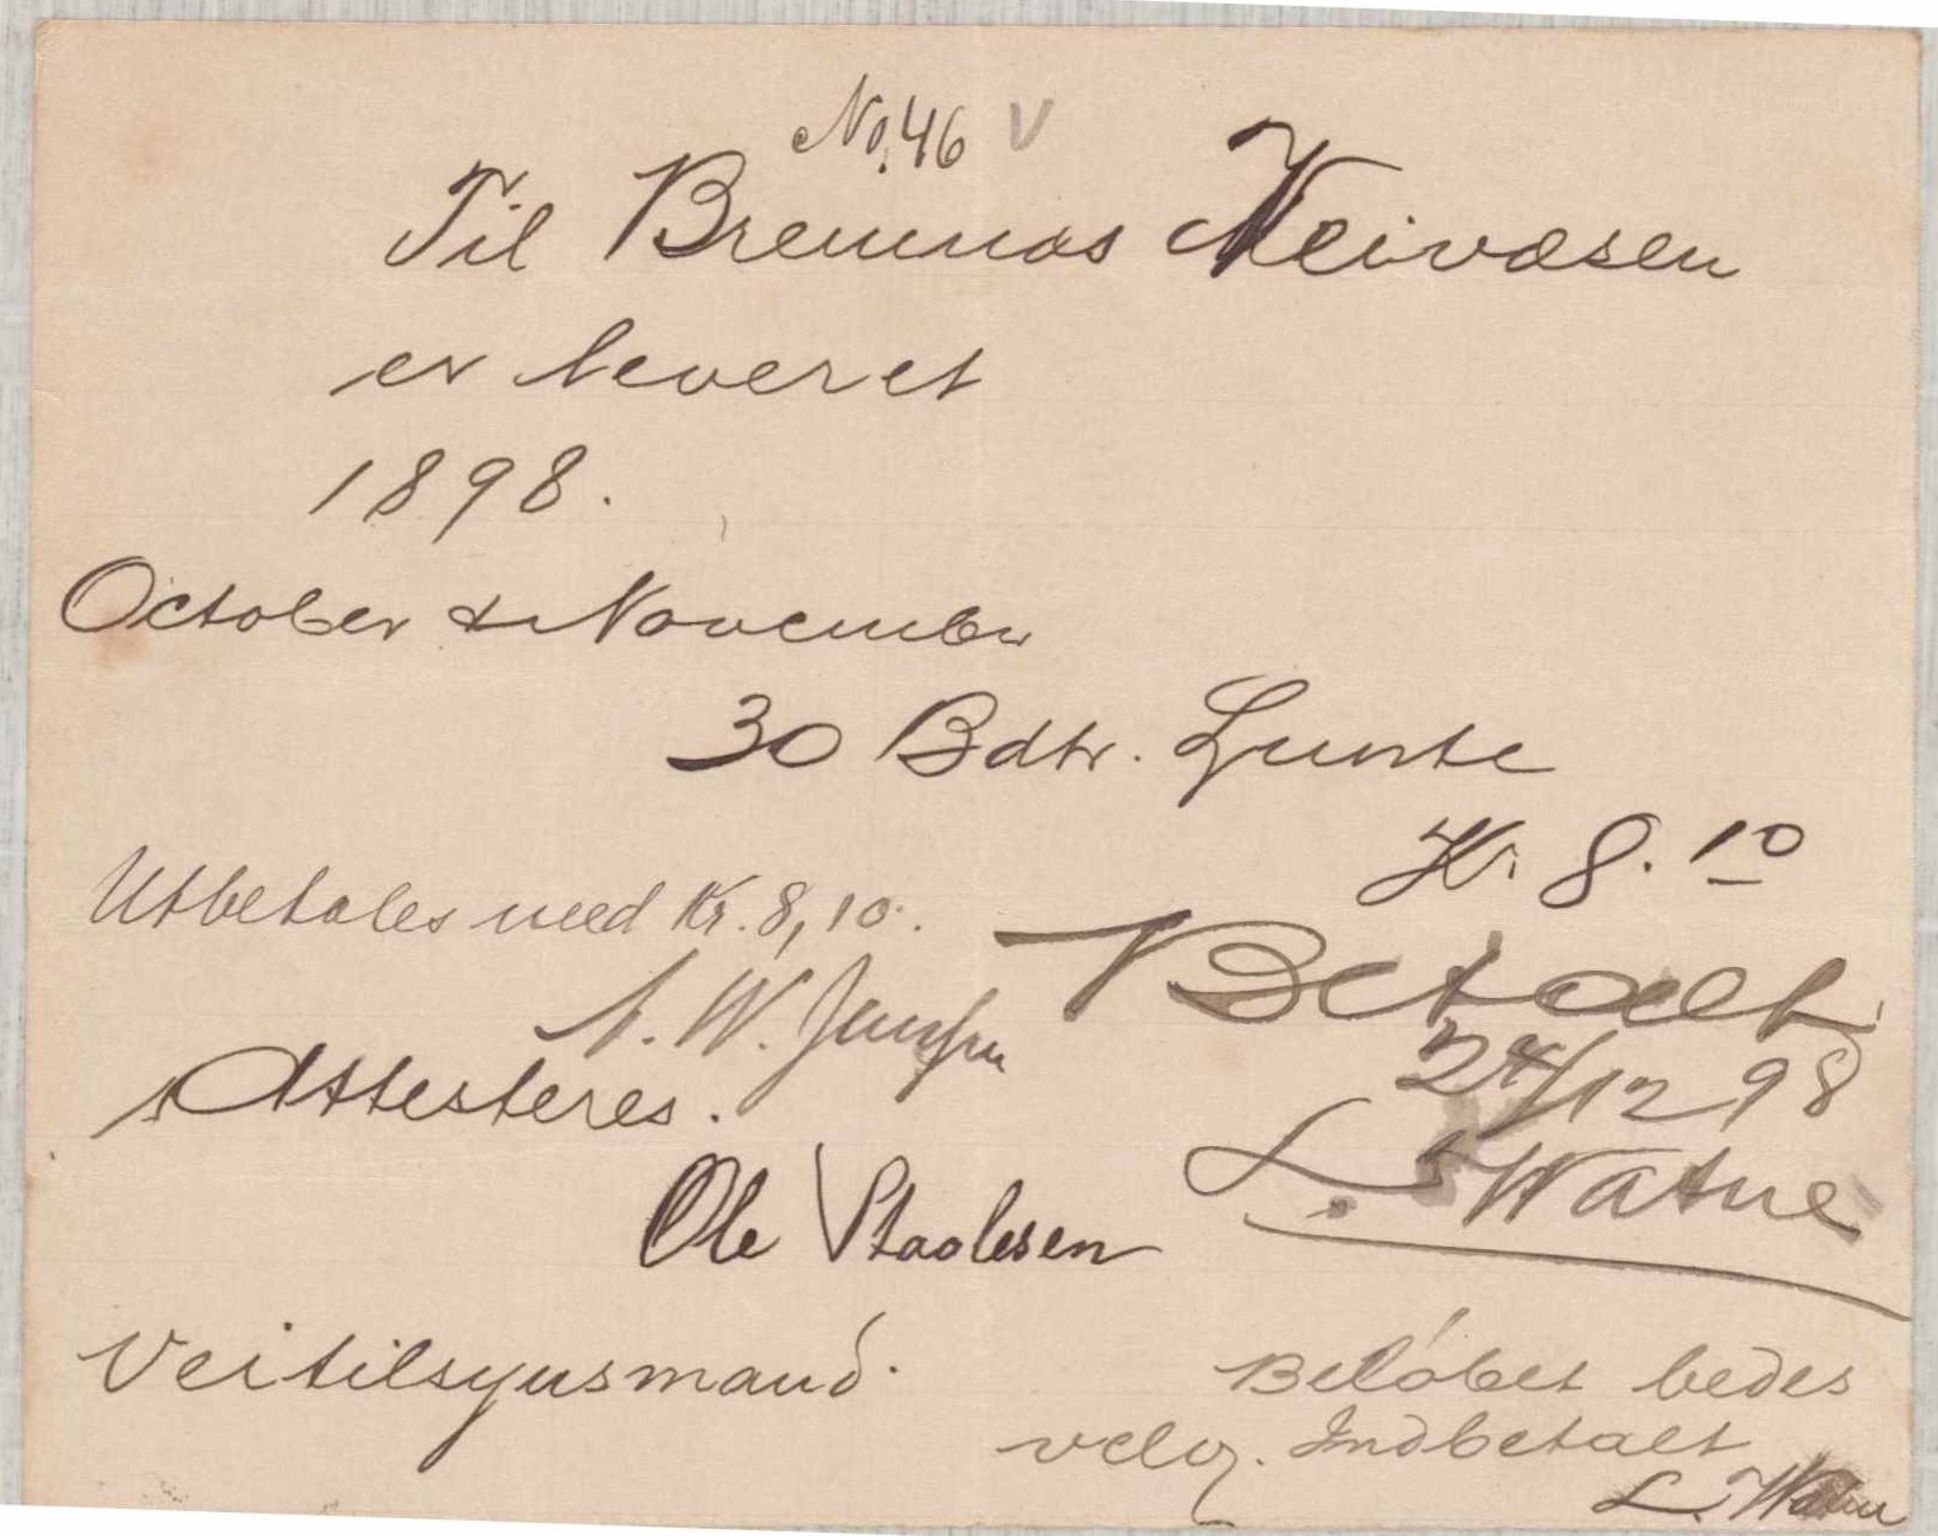 No. 46 V
Til Bremnæs Veivæsen
er leveret
1898.
October & November
30 Bdtr. Lunte
Kr. 8.10
Utbetales med Kr. 8,10.
A. W. Jensen
Betalt
24/12 98
L. Watne
Attesteres.
Ole Staalesen
Veitilsynsmand.
Beløbet bedes
velg. Indbetalt
L. Watne